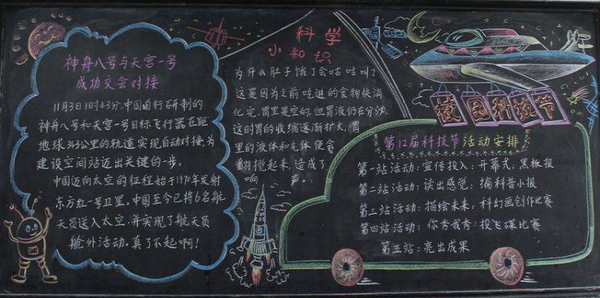 神舟八号与天宫一号
成功交会对接
11月3日1时43分,中国自行研制的
神舟八号和天宫一号目标飞行器在距
地球343公里的轨道实现自动对接,为
建设空间站迈出关键的一步。
中国迈向太空的征程始于1970年发射
东方红一号卫星,中国至今已将6名航
天员送入太空,并实现了航天员
舱外活动,真了不起啊!
科学
小知识
为什么肚子饿了会咕咕叫?
这是因为之前吃进的食物快消
化完,胃里是空的,但胃液仍在分泌,
这时胃的收缩逐渐扩大,胃
里的液体和气体便会
翻搅起来,造成了
响
校园科技节
第12届科技节活动安排
第一站活动:宣传投入:开幕式,黑板报
第二站活动:读出感觉:编科普小报
第三站活动:描绘未来:科幻画创作比赛
第四站活动:你秀我秀:投飞碟比赛
第五站:亮出成果